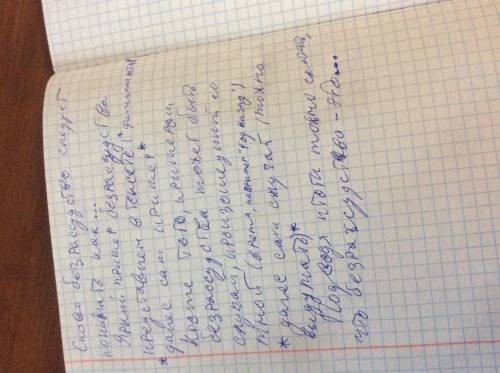 Слово безрассудство следует
понимать как...
Яркий пример безрассудства
представлен в тексте
*далее сам пример*
Кроме того, примером
безрассудства может быть
случай, произошедший со
мной (время, например "год назад")
*далее сам случай (можно
выдумать)*
Подводя итоги можно сказать,
что безрассудство - это...